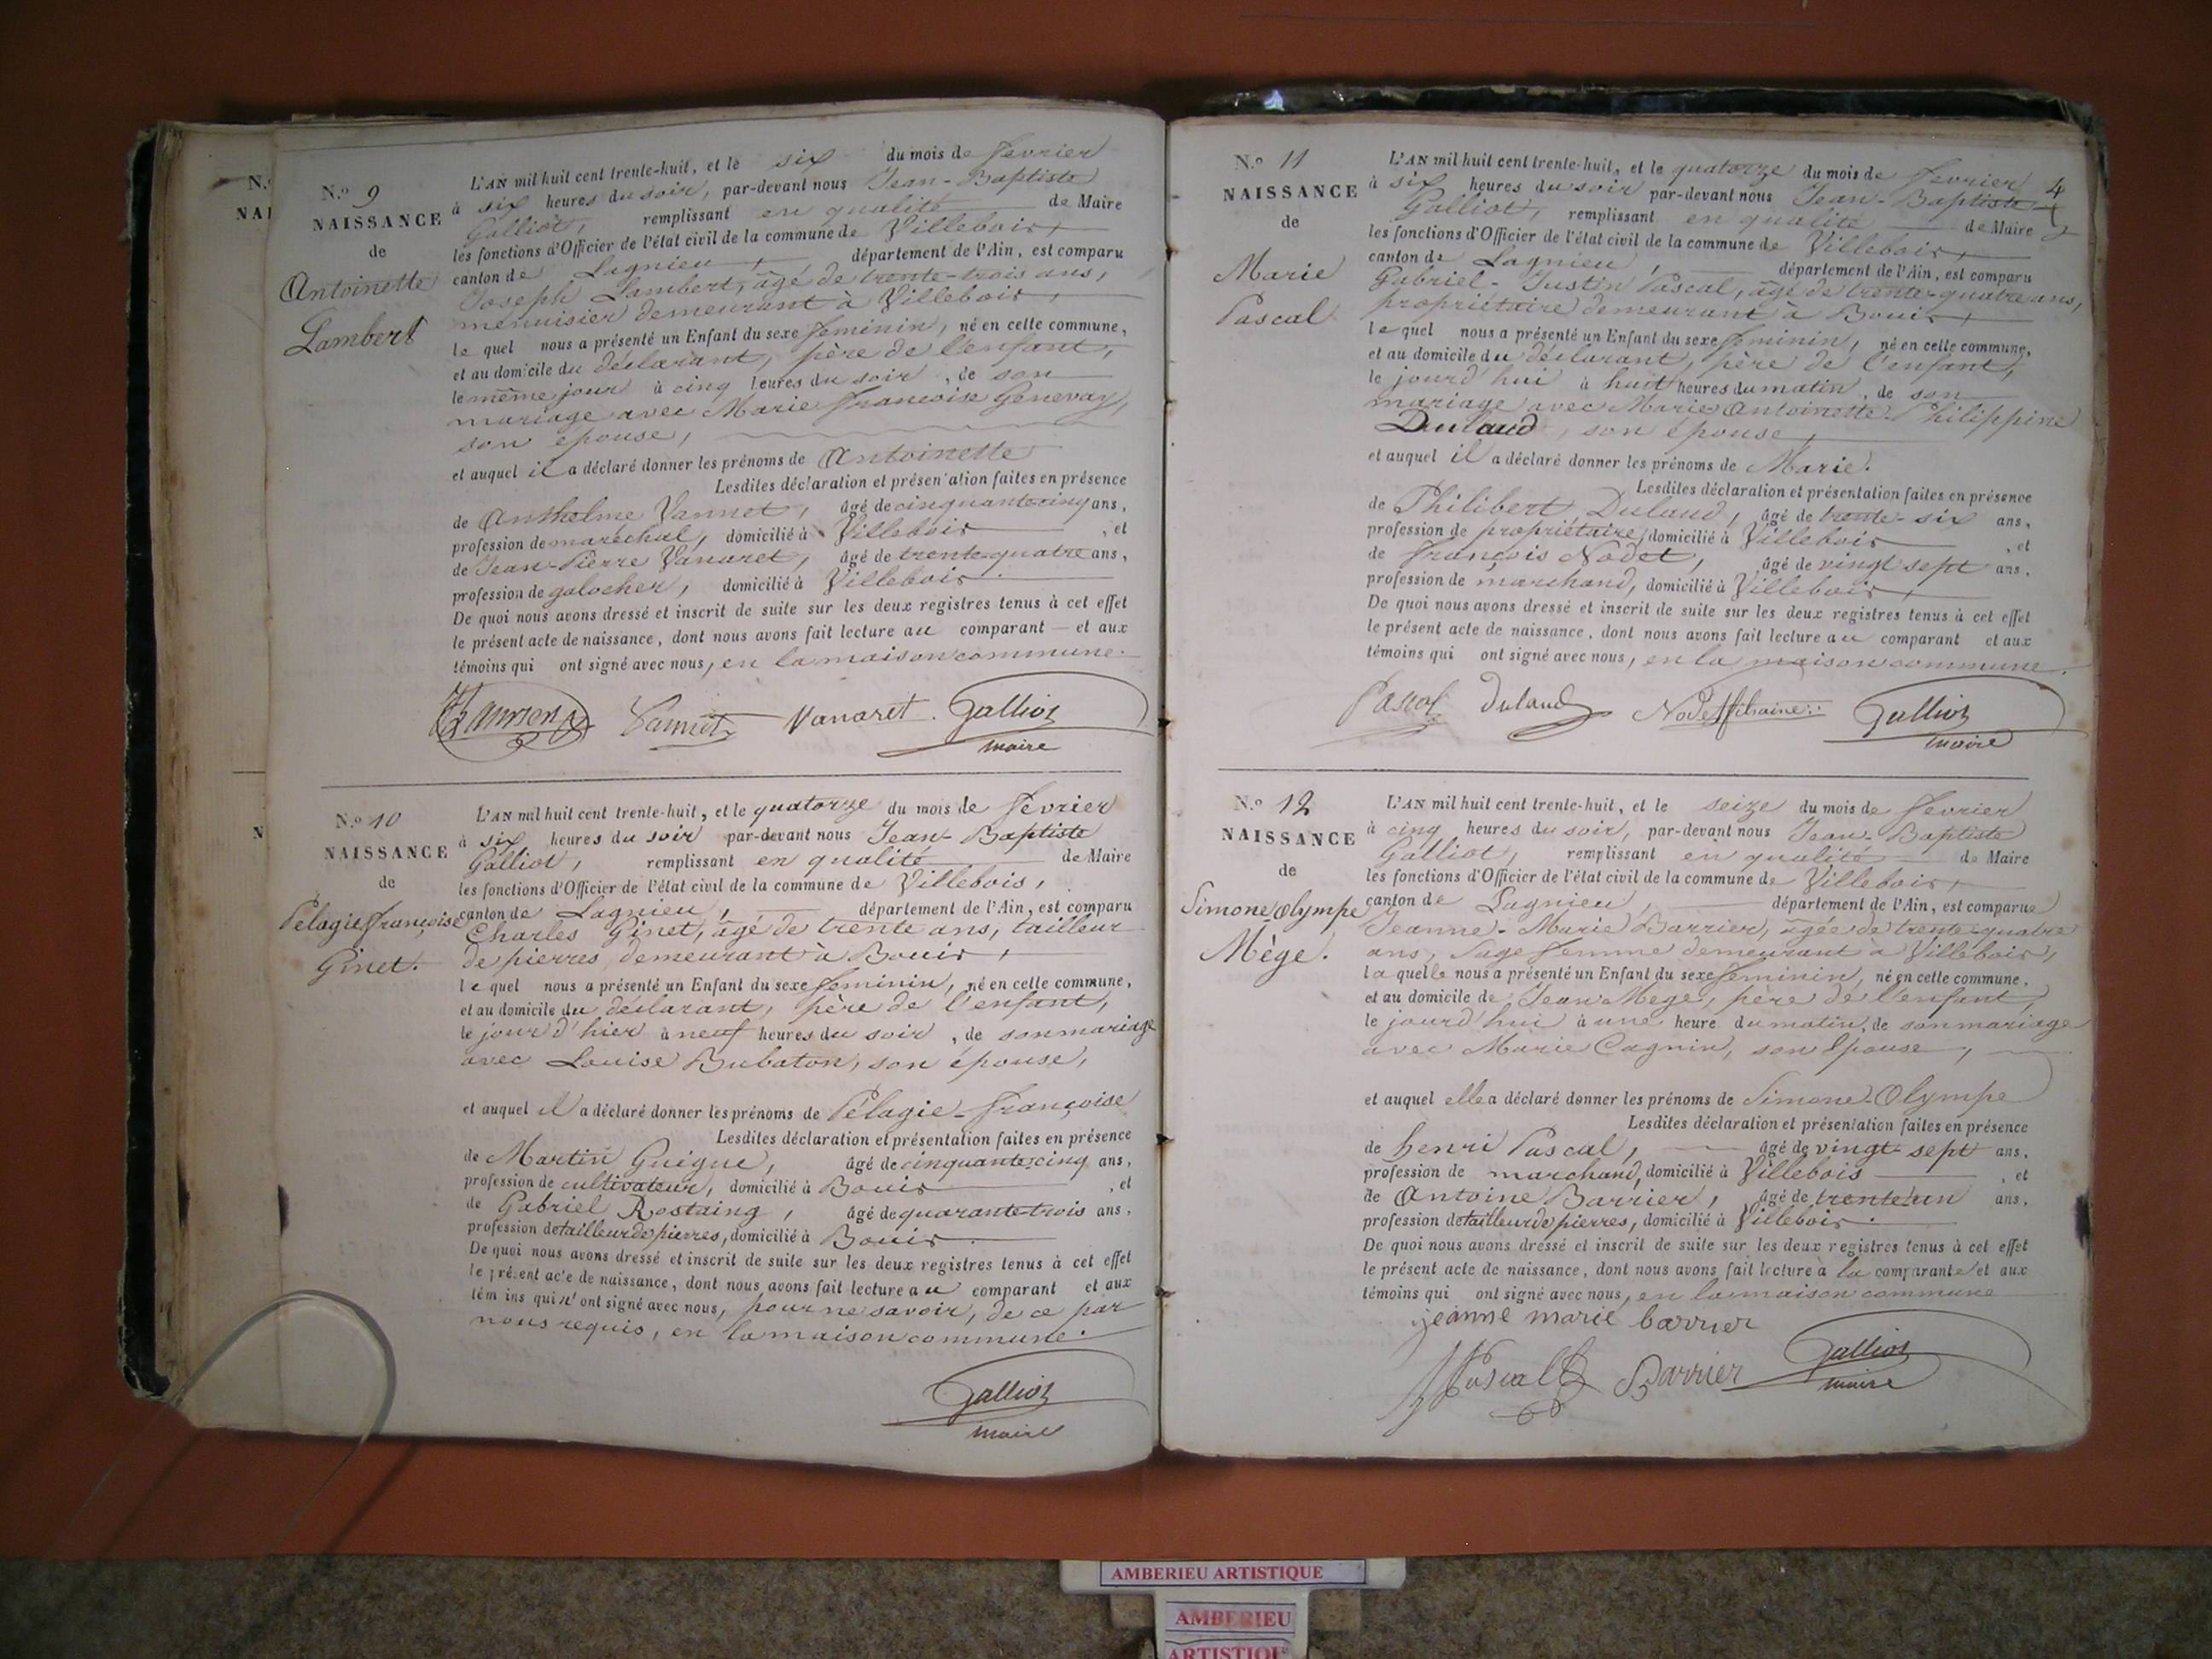 N.º 9
NAISSANCE
de
Antoinette
Lambert
L'AN mil huit cent trente-huit, et le six du mois de février
à six heures du soir, par-devant nous Jean-Baptiste
Galliot, remplissant en qualité de Maire
les fonctions d'Officier de l'état civil de la commune de Villebois,
canton de Lagnieu, département de l'Ain, est comparu
Joseph Lambert, âgé de trente-trois ans,
menuisier demeurant à Villebois,
le quel nous a présenté un Enfant du sexe féminin, né en cette commune,
et au domicile du déclarant, père de l'enfant,
le même jour à cinq heures du soir, de son
mariage avec Marie Françoise Genevay,
son épouse,
et auquel il a déclaré donner les prénoms de Antoinette
Lesdites déclaration et présentation faites en présence
de Anthelme Vannet, âgé de cinquante-cinq ans,
profession de maréchal, domicilié à Villebois, et
de Jean-Pierre Vanaret, âgé de trente-quatre ans,
profession de galocher, domicilié à Villebois.
De quoi nous avons dressé et inscrit de suite sur les deux registres tenus à cet effet
le présent acte de naissance, dont nous avons fait lecture au comparant et aux
témoins qui ont signé avec nous, en la maison commune.
Vannet Vanaret Galliot
maire
N.º 10
NAISSANCE
de
Pélagie Françoise
Ginet.
L'AN mil huit cent trente-huit, et le quatorze du mois de février
à six heures du soir par-devant nous Jean-Baptiste
Galliot, remplissant en qualité de Maire
les fonctions d'Officier de l'état civil de la commune de Villebois,
canton de Lagnieu, département de l'Ain, est comparu
Charles Ginet, âgé de trente ans, tailleur
de pierres demeurant à Bouis,
le quel nous a présenté un Enfant du sexe féminin, né en cette commune,
et au domicile du déclarant, père de l'enfant,
le jour d'hier à neuf heures du soir, de son mariage
avec Louise Bubaton, son épouse,
et auquel il a déclaré donner les prénoms de Pélagie-Françoise
Lesdites déclaration et présentation faites en présence
de Martin Guigue, âgé de cinquante-cinq ans,
profession de cultivateur, domicilié à Bouis, et
de Gabriel Rostaing, âgé de quarante-trois ans,
profession de tailleur de pierres, domicilié à Bouis.
De quoi nous avons dressé et inscrit de suite sur les deux registres tenus à cet effet
le présent acte de naissance, dont nous avons fait lecture au comparant et aux
témoins qui n'ont signé avec nous, pour ne savoir, de ce par
nous requis, en la maison commune.
Galliot
maire
4
N.º 11
NAISSANCE
de
Marie
Pascal
L'AN mil huit cent trente-huit, et le quatorze du mois de février
à six heures du soir par-devant nous Jean-Baptiste
Galliot, remplissant en qualité de Maire
les fonctions d'Officier de l'état civil de la commune de Villebois,
canton de Lagnieu, département de l'Ain, est comparu
Gabriel-Justin Pascal, âgé de trente-quatre ans,
propriétaire demeurant à Bouis,
le quel nous a présenté un Enfant du sexe féminin, né en cette commune,
et au domicile du déclarant, père de l'enfant,
le jourd'hui à huit heures du matin, de son
mariage avec Marie Antoinette Philippine
Dulaud, son épouse,
et auquel il a déclaré donner les prénoms de Marie.
Lesdites déclaration et présentation faites en présence
de Philibert Dulaud, âgé de trente-six ans,
profession de propriétaire, domicilié à Villebois, et
de François Nodet, âgé de vingt sept ans,
profession de marchand, domicilié à Villebois,
De quoi nous avons dressé et inscrit de suite sur les deux registres tenus à cet effet
le présent acte de naissance, dont nous avons fait lecture au comparant et aux
témoins qui ont signé avec nous, en la maison commune.
Pascal Dulaud Galliot
maire
N.º 12
NAISSANCE
de
Simone Olympe
Mège.
L'AN mil huit cent trente-huit, et le seize du mois de février
à cinq heures du soir, par-devant nous Jean-Baptiste
Galliot, remplissant en qualité de Maire
les fonctions d'Officier de l'état civil de la commune de Villebois,
canton de Lagnieu, département de l'Ain, est comparue
Jeanne-Marie Barrier, âgée de trente-quatre
ans, sage femme demeurant à Villebois,
la quelle nous a présenté un Enfant du sexe féminin, né en cette commune,
et au domicile de Jean Mège, père de l'enfant,
le jourd'hui à une heure du matin, de son mariage
avec Marie Cagnin, son épouse,
et auquel elle a déclaré donner les prénoms de Simone-Olympe
Lesdites déclaration et présentation faites en présence
de henri Pascal, âgé de vingt-sept ans,
profession de marchand, domicilié à Villebois, et
de Antoine Barrier, âgé de trente un ans,
profession de tailleur de pierres, domicilié à Villebois.
De quoi nous avons dressé et inscrit de suite sur les deux registres tenus à cet effet
le présent acte de naissance, dont nous avons fait lecture à la comparante et aux
témoins qui ont signé avec nous, en la maison commune
jeanne marie barrier
Pascal Barrier Galliot
maire
AMBERIEU ARTISTIQUE
AMBERIEU
ARTISTIQUE